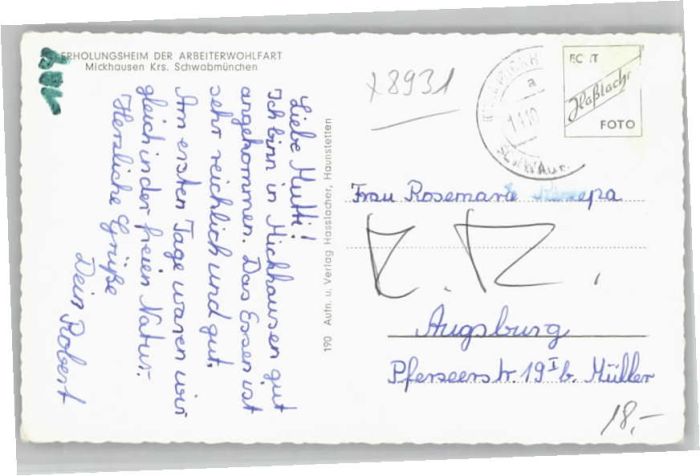 ERHOLUNGSHEIM DER ARBEITERWOHLFART
Mickhausen Krs. Schwabmünchen
Liebe Mutti!
Ich binn in Mickhausen gut
angekommen. Das Essen ist
sehr reichlich und gut.
Am ersten Tage waren wir
gleich in der freien Natur.
Herzliche Grüße
Dein Robert
190 Aufn. u. Verlag Hasslacher, Haunstetten
x8931
a
ECHT
Haßlacher
FOTO
Frau Rosemarie
Augsburg
Pferseerstr. 19 I b. Müller
18,-